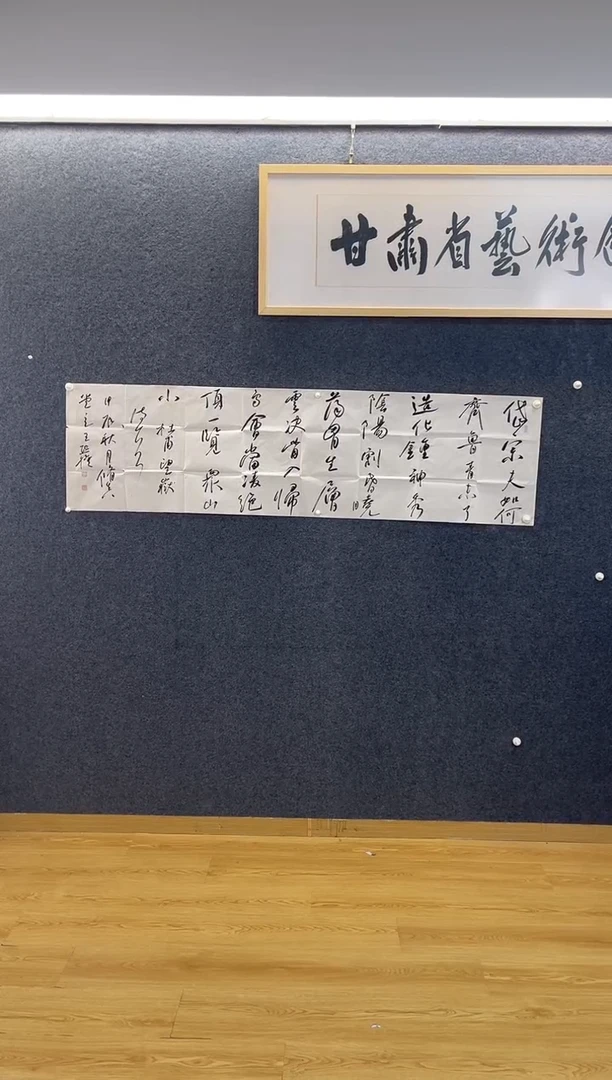 甘肅省藝術
岱宗夫如何
齊魯青未了
造化鍾神秀
陰陽割昏曉
蕩胷生層
雲決眥入歸
鳥會當凌絕
頂一覽衆山
小 杜甫望嶽
甲辰秋月
堂主王